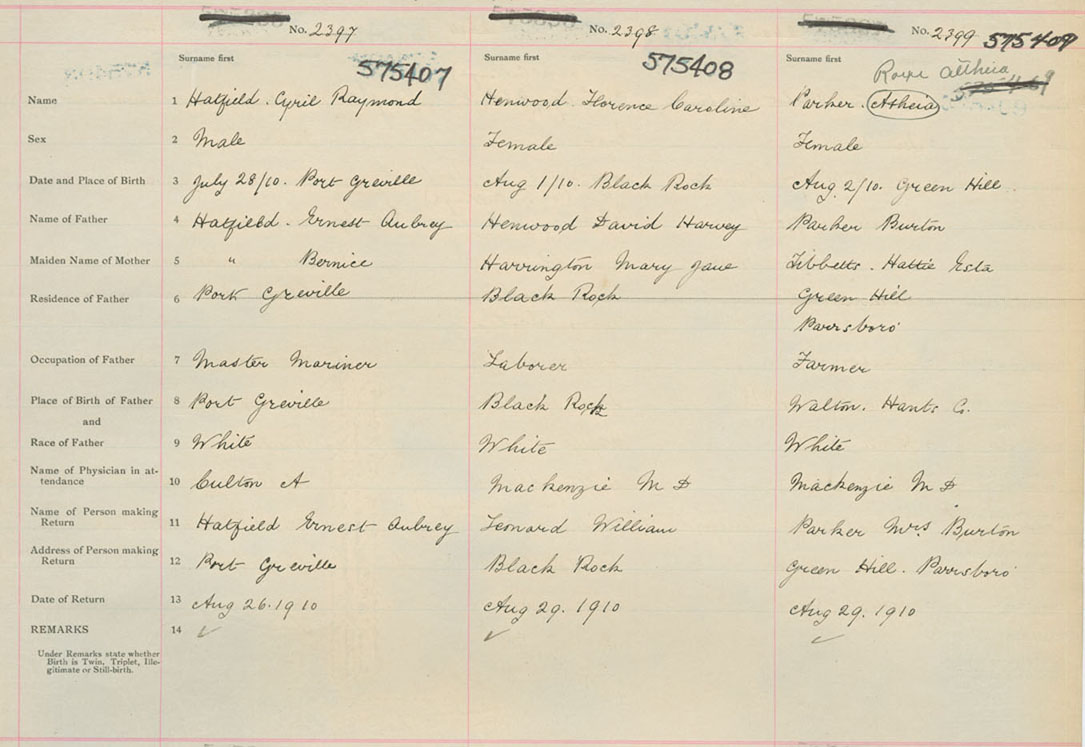 No. 2397 No. 2398 No. 2399 575409
Surname first Surname first Surname first
575407 575408 Altheia
Name 1 Hatfield. Cyril Raymond Henwood. Florence Caroline Parker. Asheia
Sex 2 Male Female Female
Date and Place of Birth 3 July 28/10. Port Greville Aug 1/10. Black Rock Aug. 2/10. Green Hill
Name of Father 4 Hatfield. Ernest Aubrey Henwood David Harvey Parker Burton
Maiden Name of Mother 5 " Bernice Harrington Mary Jane Tibbetts. Hattie Esta
Residence of Father 6 Port Greville Black Rock Green Hill
Parrsboro
Occupation of Father 7 Master Mariner Laborer Farmer
Place of Birth of Father 8 Port Greville Black Rock Walton. Hants Co.
and
Race of Father 9 White White White
Name of Physician in at-
tendance 10 Culton A Mackenzie M D Mackenzie M D
Name of Person making
Return 11 Hatfield Ernest Aubrey Leonard William Parker Mrs. Burton
Address of Person making
Return 12 Port Greville Black Rock Green Hill. Parrsboro
Date of Return 13 Aug 26. 1910 Aug 29. 1910 Aug 29. 1910
REMARKS 14 ✓ ✓ ✓
Under Remarks state whether
Birth is Twin, Triplet, Ille-
gitimate or Still-birth.